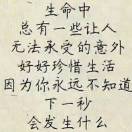 生命中
总有一些让人
无法承受的意外
好好珍惜生活
因为你永远不知道
下一秒
会发生什么